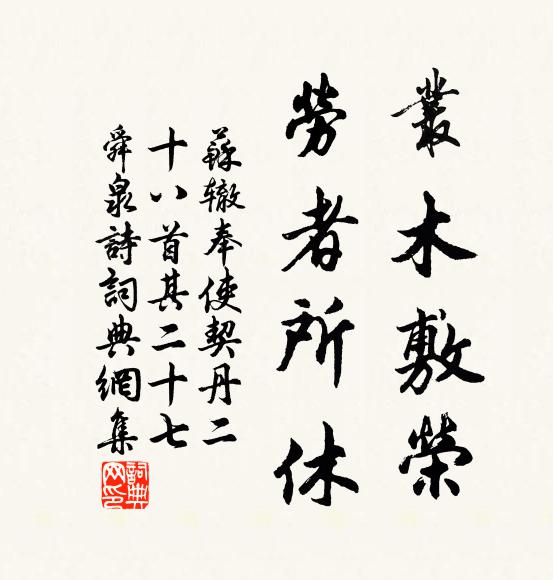 叢木敷榮
勞者所休
蘇轍奉使契丹二
十八首其二十七
舜泉詩詞典網集
詞典網印